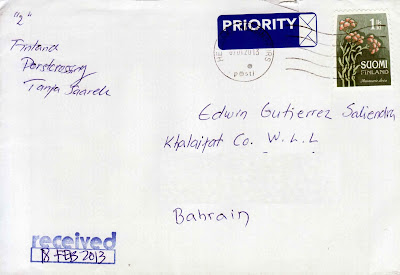 "2"
Finland
Postcrossing
Tanja
PRIORITY
HE RS
07.01.2013
posti
1 lk kl
SUOMI
FINLAND
Edwin Gutierrez Saliendra
Khalaifat Co. W.L.L
Bahrain
received
18 FEB 2013